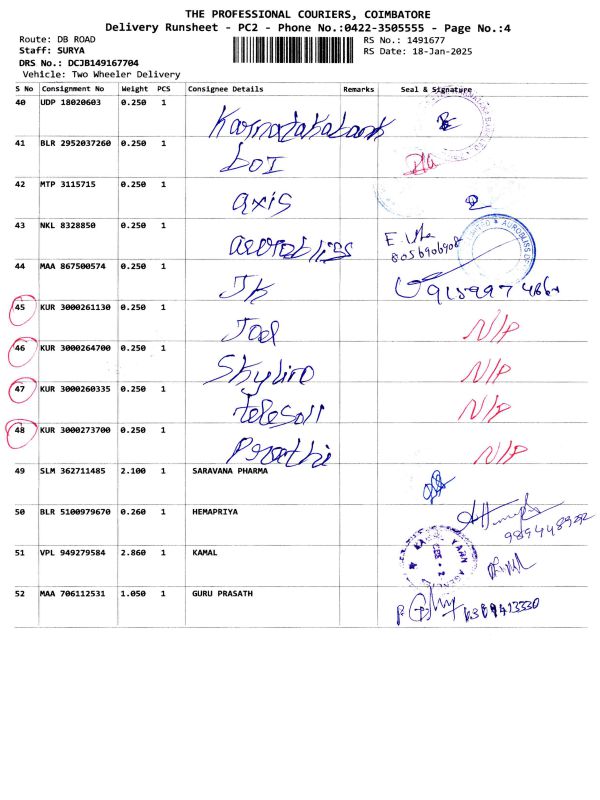 THE PROFESSIONAL COURIERS, COIMBATORE
Delivery Runsheet - PC2 - Phone No.:0422-3505555 - Page No.:4
Route: DB ROAD RS No.: 1491677
Staff: SURYA RS Date: 18-Jan-2025
DRS No.: DCJB149167704
Vehicle: Two Wheeler Delivery
S No Consignment No Weight PCS Consignee Details Remarks Seal & Signature
40 UDP 18020603 0.250 1 Karnatakabank
41 BLR 2952037260 0.250 1 DOI
42 MTP 3115715 0.250 1 axis
43 NKL 8328850 0.250 1 E. 8056906908 AUROBLISS
44 MAA 867500574 0.250 1 JK
45 KUR 3000261130 0.250 1 Joel N/P
46 KUR 3000264700 0.250 1 N/P
47 KUR 3000260335 0.250 1 N/P
48 KUR 3000273700 0.250 1 N/P
49 SLM 362711485 2.100 1 SARAVANA PHARMA
50 BLR 5100979670 0.260 1 HEMAPRIYA
51 VPL 949279584 2.860 1 KAMAL YARN
52 MAA 706112531 1.050 1 GURU PRASATH